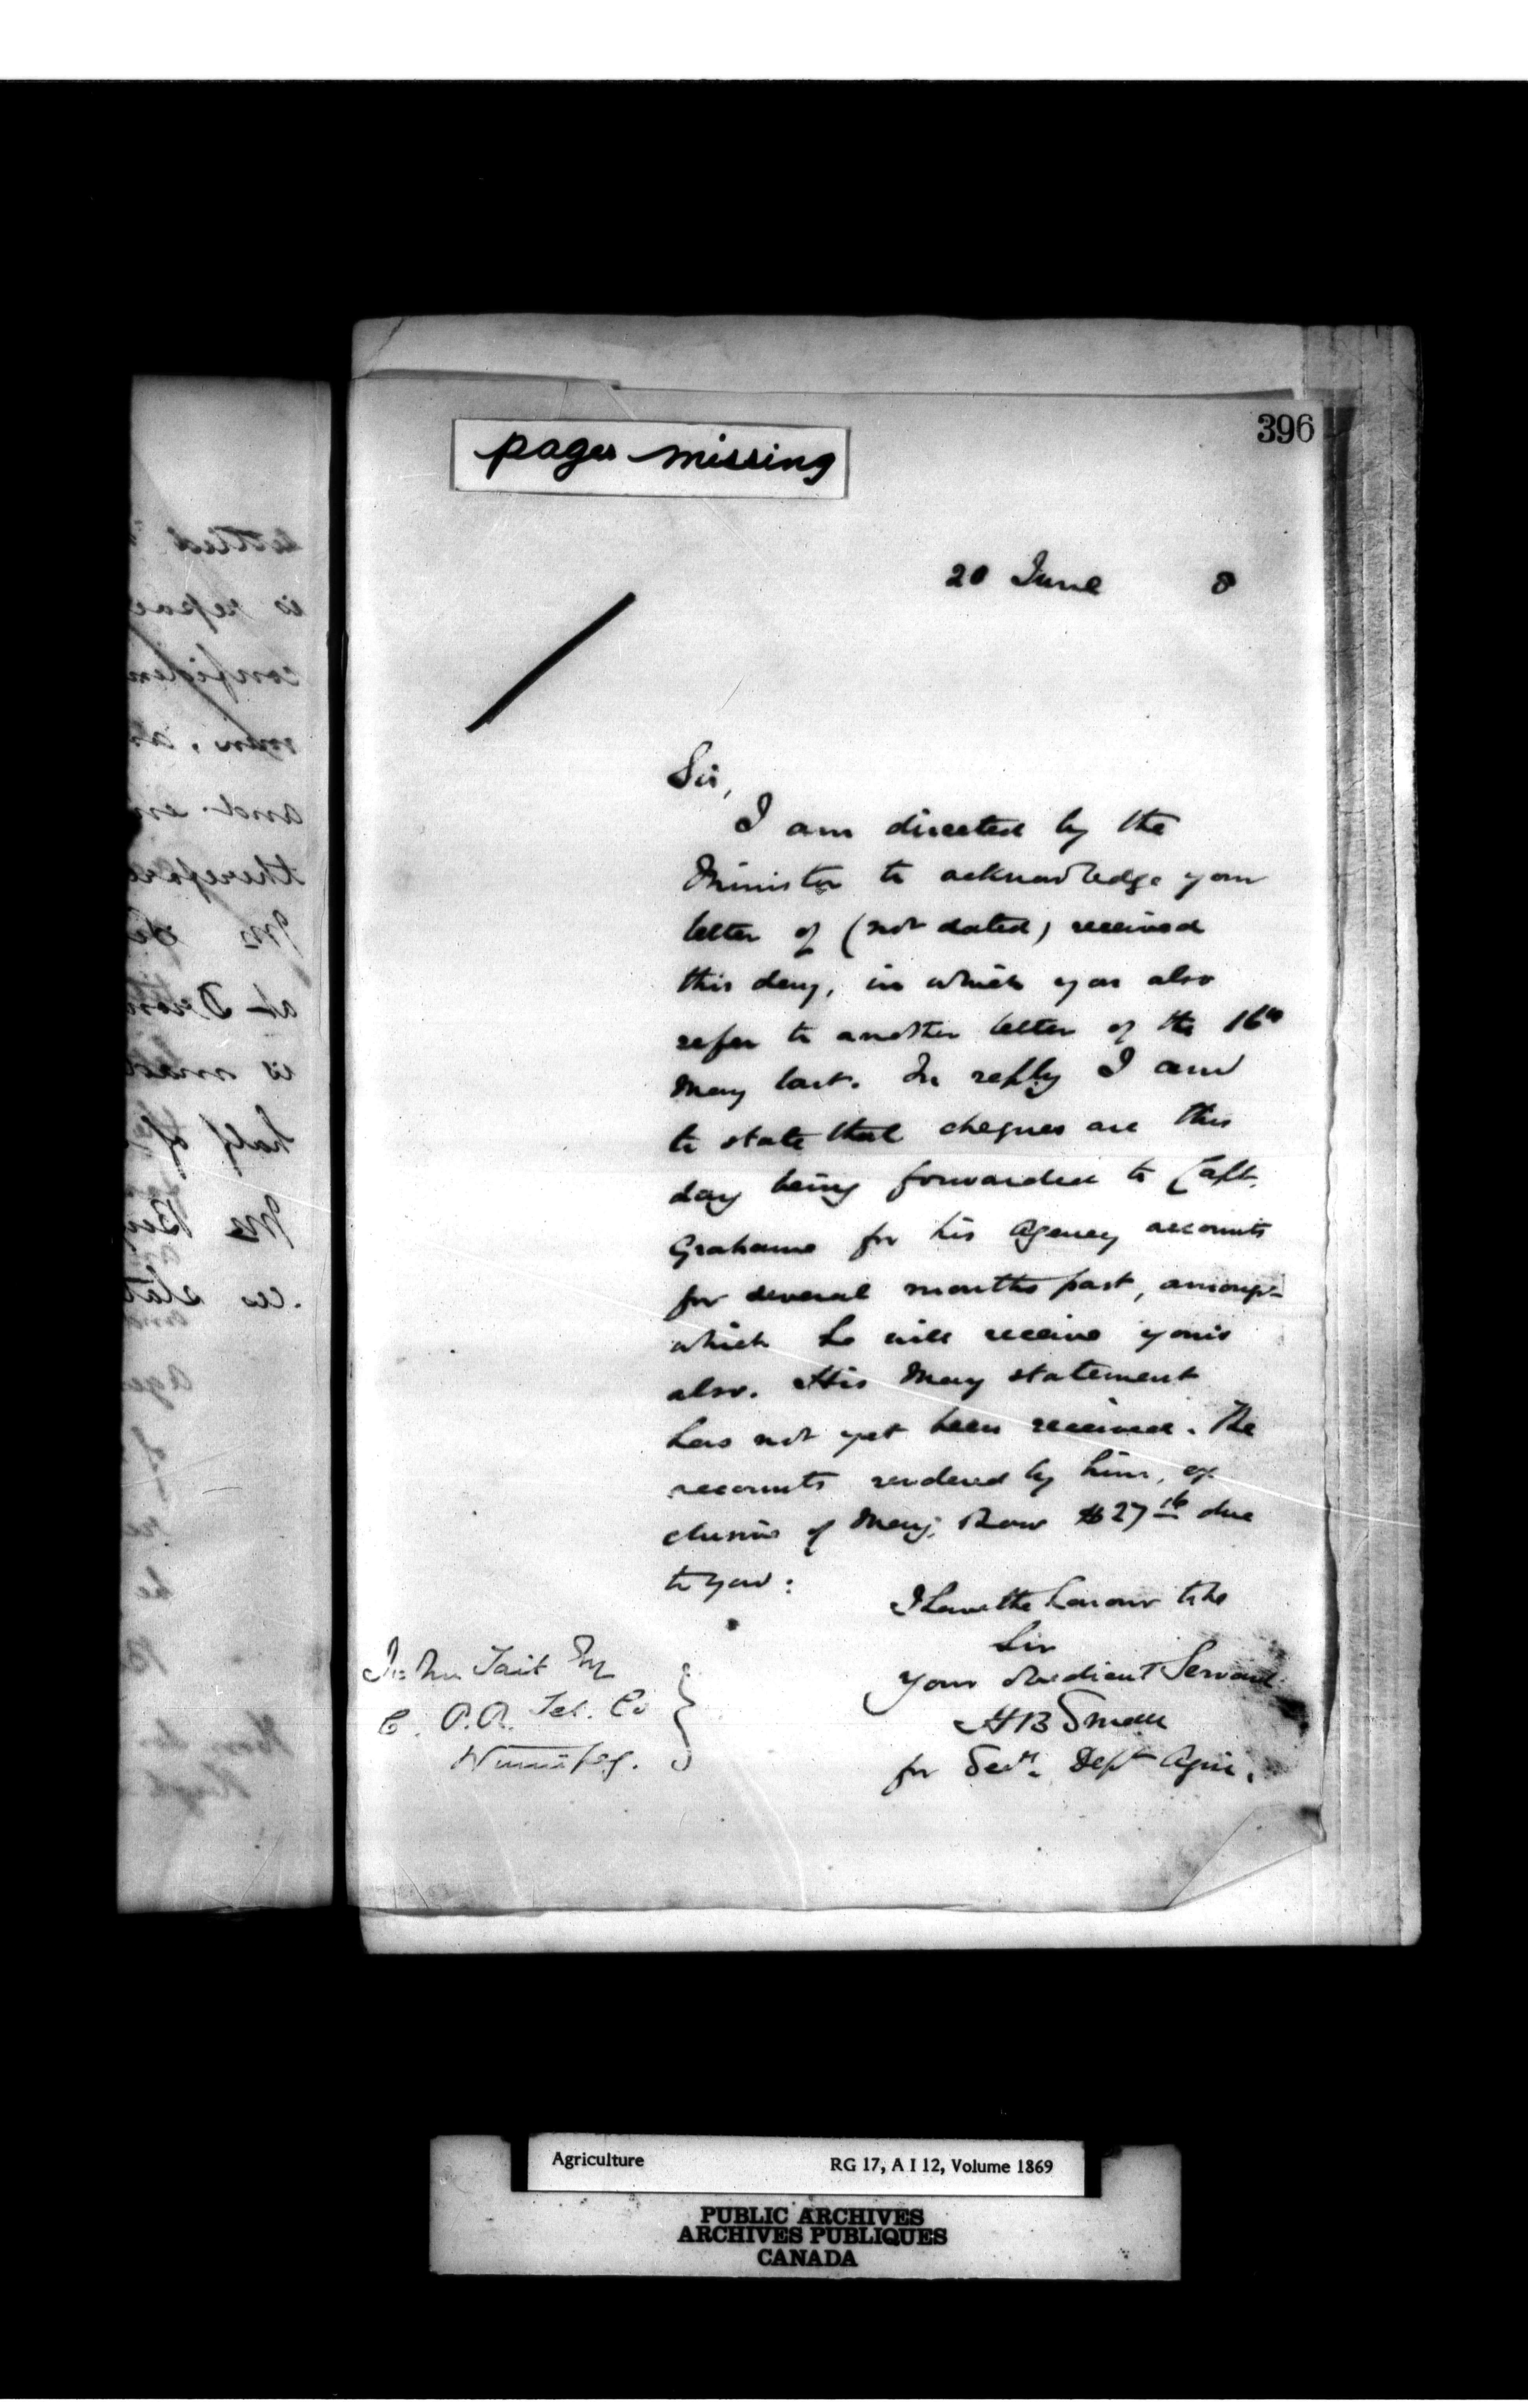 396
pages missing
20 June 8
Sir,
I am directed by the
Minister to acknowledge your
letter of (not dated) received
this day, in which you also
refer to another letter of the 16th
May last. In reply I am
to state that cheques are this
day being forwarded to Capt.
Grahame for his Agency accounts
for several months past, amongst
which he will receive yours
also. His May statement
has not yet been received. The
accounts rendered by him, ex
clusive of May, show $27 due
to you:
I have the honour to be
Sir
Your obedient Servant
H B Small
for Secy. Dept Agric.
John Tait Esq
C. P. R. Tel. Co
Winnipeg.
Agriculture RG 17, A I 12, Volume 1869
PUBLIC ARCHIVES
ARCHIVES PUBLIQUES
CANADA